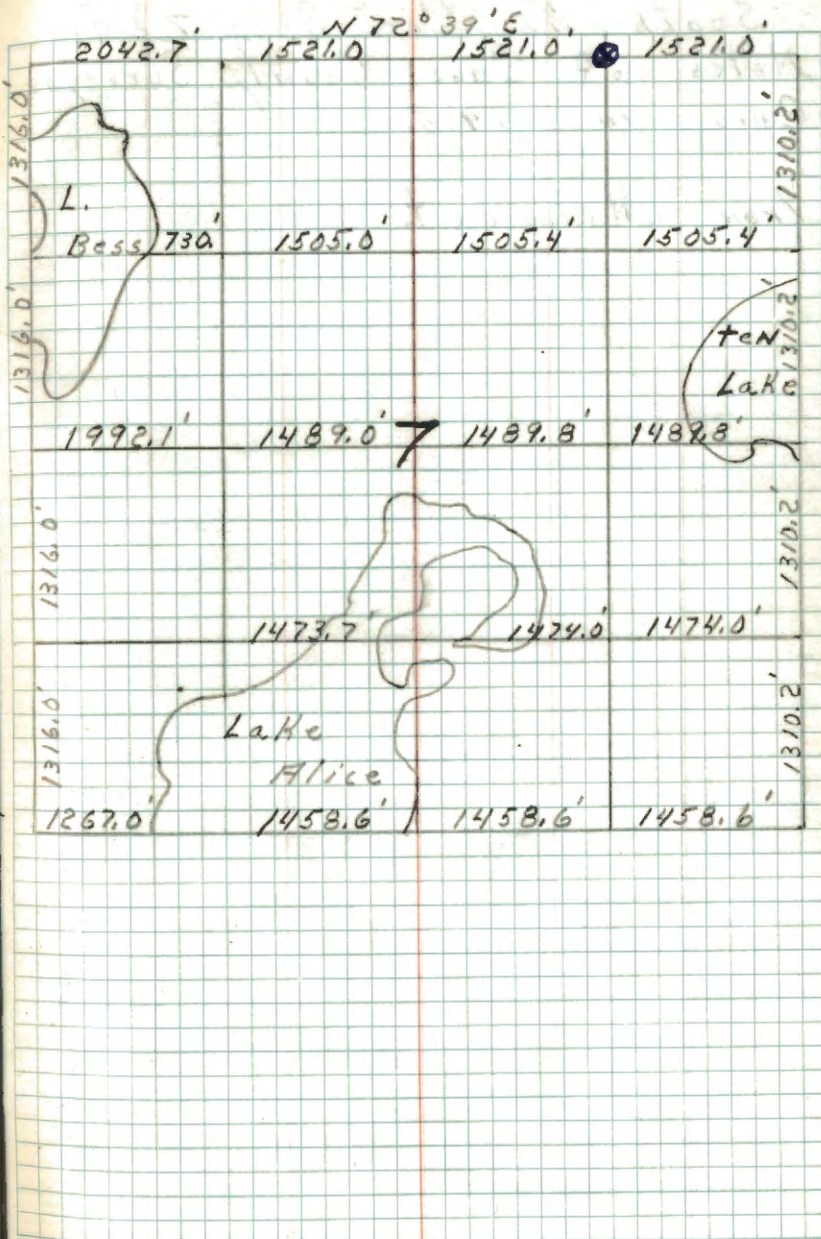 N 72° 39' E
2042.7' 1521.0' 1521.0' 1521.0'
1316.0' 1310.2'
L.
Bess 730.' 1505.0' 1505.4' 1505.4'
1316.0' 1310.2'
teN
Lake
1992.1' 1489.0' 7 1489.8' 1489.8'
1316.0' 1310.2'
1473.7' 1474.0' 1474.0'
1316.0' 1310.2'
Lake
Alice
1267.0' 1458.6' 1458.6' 1458.6'